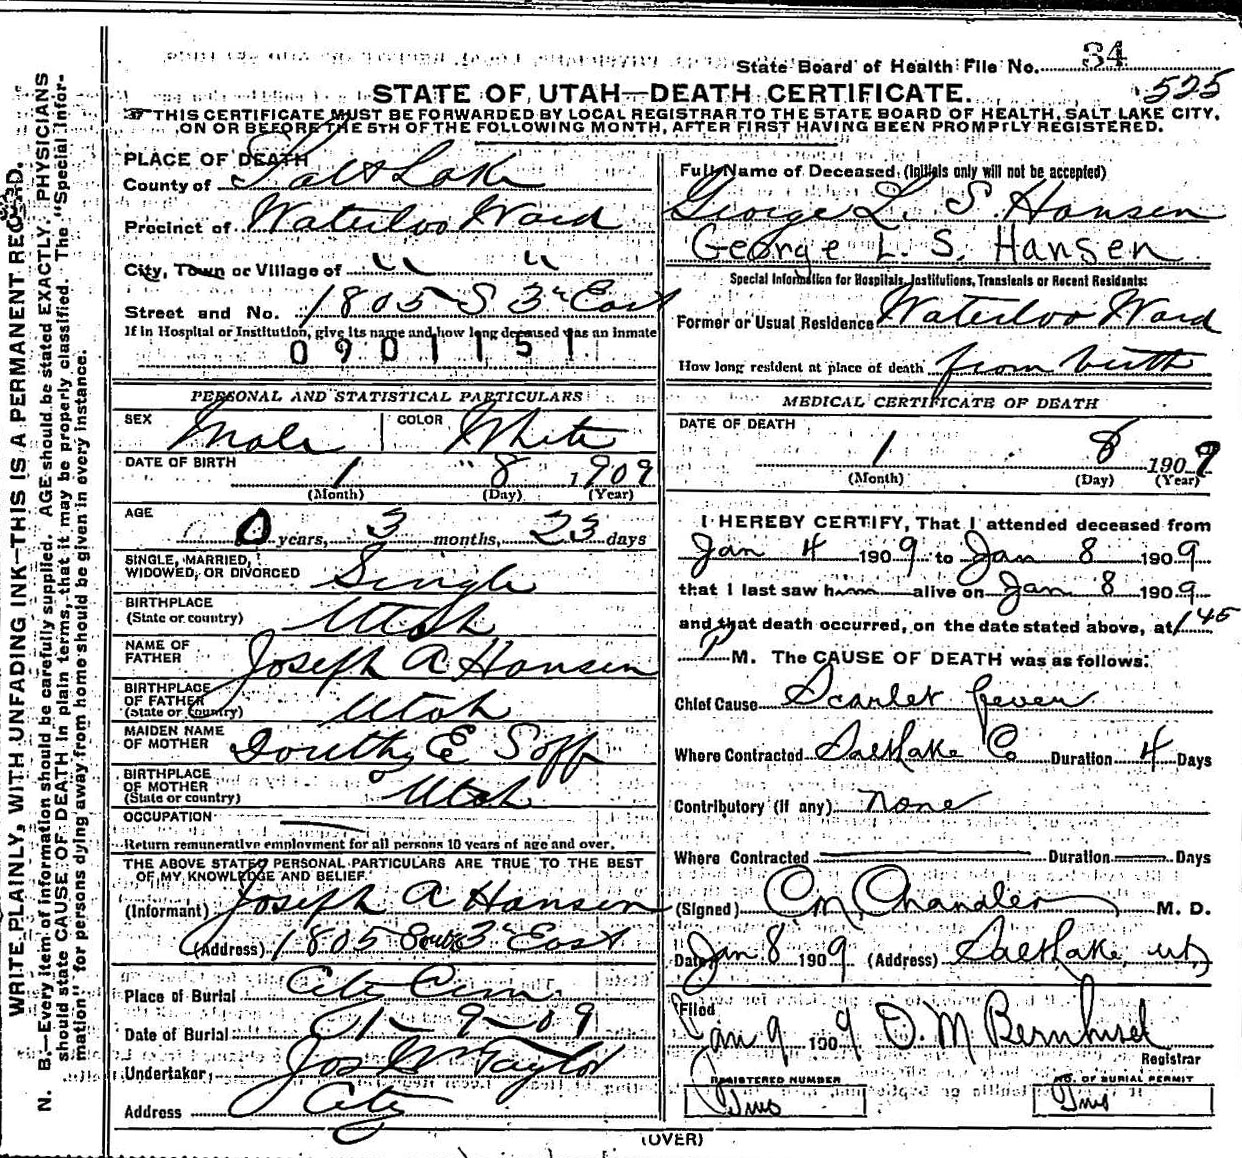 State Board of Health File No. 34
525
STATE OF UTAH—DEATH CERTIFICATE.
THIS CERTIFICATE MUST BE FORWARDED BY LOCAL REGISTRAR TO THE STATE BOARD OF HEALTH, SALT LAKE CITY,
ON OR BEFORE THE 5TH OF THE FOLLOWING MONTH, AFTER FIRST HAVING BEEN PROMPTLY REGISTERED.
WRITE PLAINLY, WITH UNFADING INK—THIS IS A PERMANENT RECORD.
N. B.—Every item of information should be carefully supplied. AGE should be stated EXACTLY. PHYSICIANS
should state CAUSE OF DEATH in plain terms, that it may be properly classified. The "Special Infor-
mation" for persons dying away from home should be given in every instance.
PLACE OF DEATH
County of Salt Lake
Precinct of Waterloo Ward
City, Town or Village of " "
Street and No. 1805 S 3rd East
If in Hospital or Institution, give its name and how long deceased was an inmate
0901151
PERSONAL AND STATISTICAL PARTICULARS
SEX Male COLOR White
DATE OF BIRTH 1 8 1909
(Month) (Day) (Year)
AGE
0 years, 3 months, 23 days
SINGLE, MARRIED,
WIDOWED, OR DIVORCED Single
BIRTHPLACE
(State or country) Utah
NAME OF
FATHER Joseph A Hansen
BIRTHPLACE
OF FATHER
(State or country) Utah
MAIDEN NAME
OF MOTHER E Soff
BIRTHPLACE
OF MOTHER
(State or country) Utah
OCCUPATION
Return remunerative employment for all persons 10 years of age and over.
THE ABOVE STATED PERSONAL PARTICULARS ARE TRUE TO THE BEST
OF MY KNOWLEDGE AND BELIEF.
(Informant) Joseph A Hansen
(Address) 1805 South 3rd East
Place of Burial City Cem
Date of Burial 1-9-09
Undertaker Jos Wm Taylor
Address City
Full Name of Deceased (Initials only will not be accepted)
George L. S. Hansen
George L. S. Hansen
Special Information for Hospitals, Institutions, Transients or Recent Residents:
Former or Usual Residence Waterloo Ward
How long resident at place of death from birth
MEDICAL CERTIFICATE OF DEATH
DATE OF DEATH
1 8 1909
(Month) (Day) (Year)
I HEREBY CERTIFY, That I attended deceased from
Jan 4 1909 to Jan 8 1909
that I last saw him alive on Jan 8 1909
and that death occurred, on the date stated above, at 1 45
P M. The CAUSE OF DEATH was as follows:
Chief Cause Scarlet fever
Where Contracted Salt Lake Co Duration 4 Days
Contributory (if any) none
Where Contracted Duration Days
(Signed) C. M. Chandler M. D.
Date Jan 8 1909 (Address) Salt Lake, Ut,
Filed
Jan 9 1909 D. M Bernhisel
Registrar
REGISTERED NUMBER
NO. OF BURIAL PERMIT
(OVER)